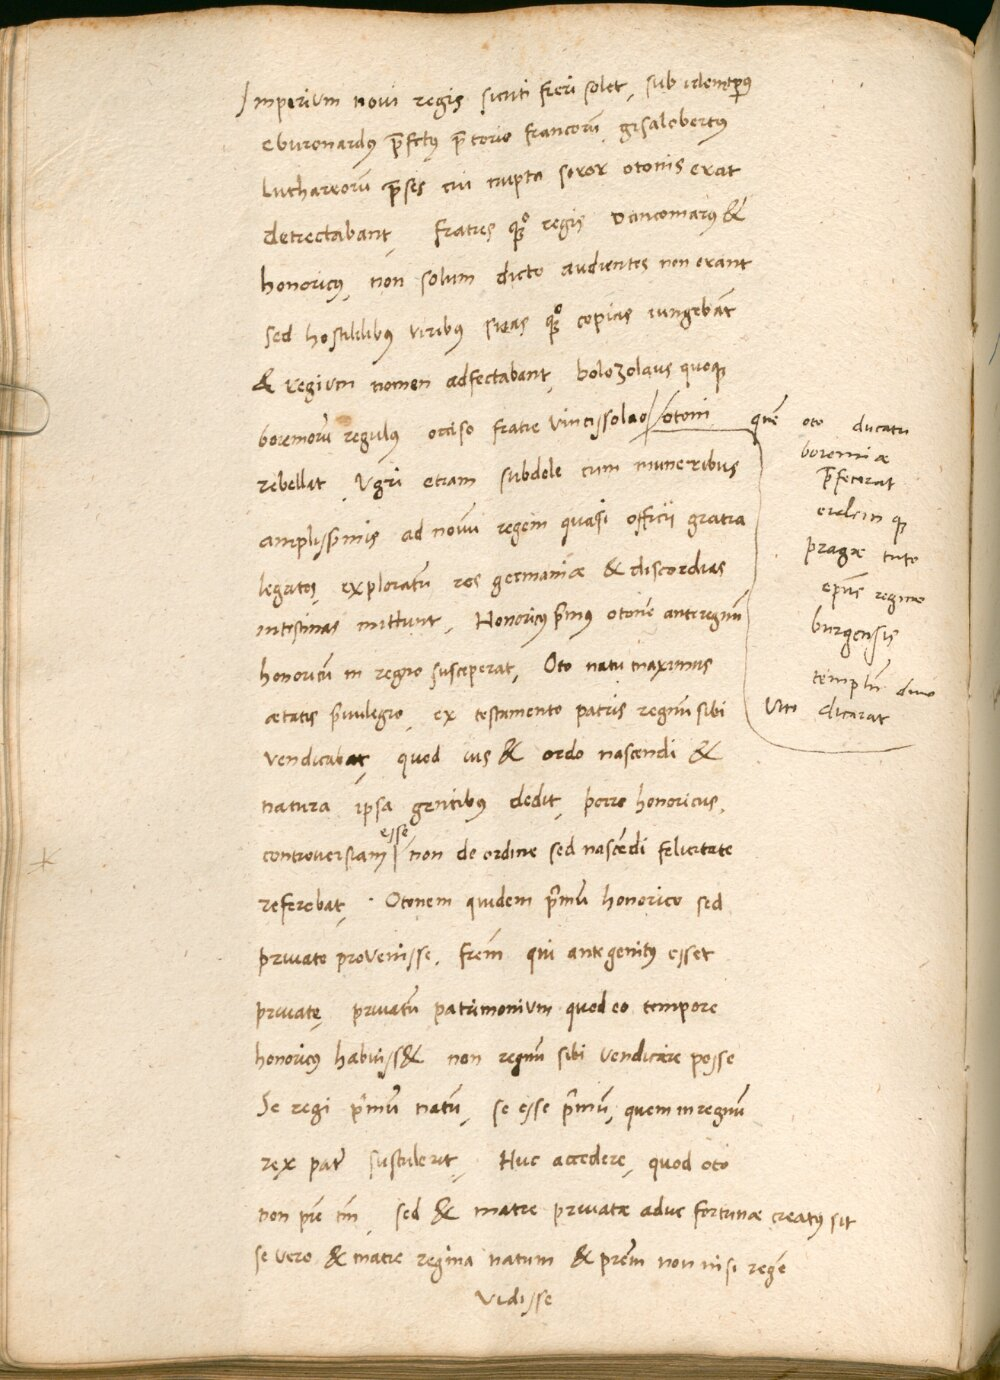 Imperium novi regis sicuti fieri solet, sub idem tp̄us
eburonardus p̄fctus p̄torio francorū grsalobertus
Lutharroru p̄ses cui nupta soror otonis erat
detrectabant, fratres quoque regis dancomarus &
honoricus, non solum dicto audientes non erant
sed hostilibus viribus suas quoque copias iungebāt
& regium nomen adfectabant, bolozolaus quoque
boiemorū regulus occiso fratre vincissolao / otoni
rebellat, Vgri etiam subdole cum muneribus
amplissimis ad novū regem quasi officii gratia
legatos, exploratū res germaniæ & discordias
intestinas mittunt, Honoricus p̄mus otonē anteregnū
honoricū in regno susceperat, Oto natu maximus
ætatis p̄vilegio, ex testamento patris regnū sibi
vendicabat, quod ius & ordo nascendi &
natura ipsa gentibus dedit, porro honoricus,
esse
controversiam non de ordine sed nascēdi felicitate
referebat, Otonem quidem p̄mū honorico sed
privato provenisse, frēm qui antegenitus esset
private, privatū patrimonium quod eo tempore
honoricus habuiss& non regnū sibi vendicare posse
Se regi p̄mū natū, se esse p̄mū, quem in regnū
rex pat̄ sustulerit, Huc accedere, quod oto
non p̄re tm̄ sed & matre privatæ aduc fortunæ creatus sit
se vero & matre regina natum & prēm non nisi regē
vidisse
quē oto ducatu
boiemiæ
p̄fecerat
eidem que
pragæ tuto
ep̄us regino
burgensis
templū divo
Vito dicarat